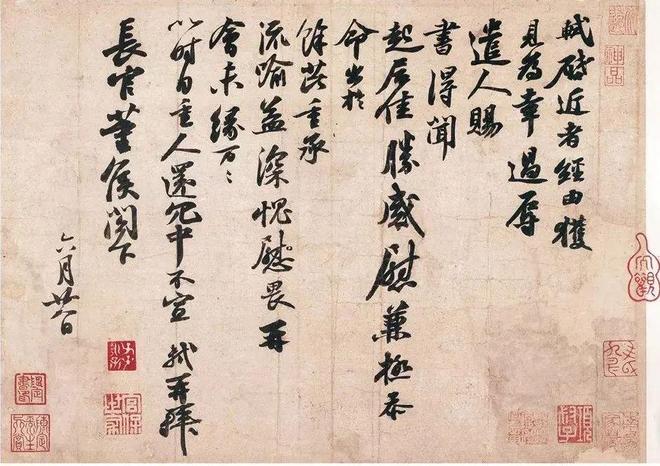 軾啓近者經由獲
見為幸過辱
遣人賜
書得聞
起居佳勝感慰兼極忝
命出於
餘芘重承
流喻益深愧慰畏再
會未緣万〻
以時自重人還冗中不宣 軾再拜
長官董侯閤下
六月廿八日
神品